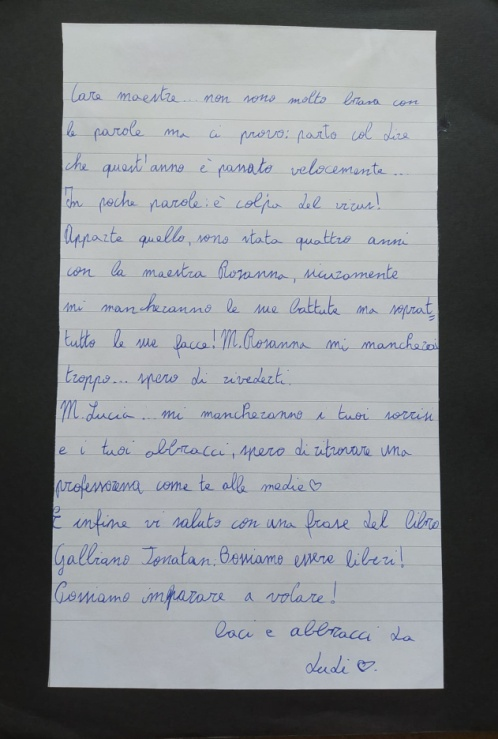 Care maestre... non sono molto brava con
le parole ma ci provo: parto col dire
che quest'anno è passato velocemente...
In poche parole: è colpa del virus!
Apparte quello, sono stata quattro anni
con la maestra Rosanna, sicuramente
mi mancheranno le sue battute ma soprat=
tutto le sue facce! M.Rosanna mi mancherai
troppo... spero di rivederti.
M.Lucia... mi mancheranno i tuoi sorrisi
e i tuoi abbracci, spero di ritrovare una
professoressa come te alle medie♡
E infine vi saluto con una frase del libro
Gabbiano Jonatan. Possiamo essere liberi!
Possiamo imparare a volare!
baci e abbracci da
Ludi ♡.